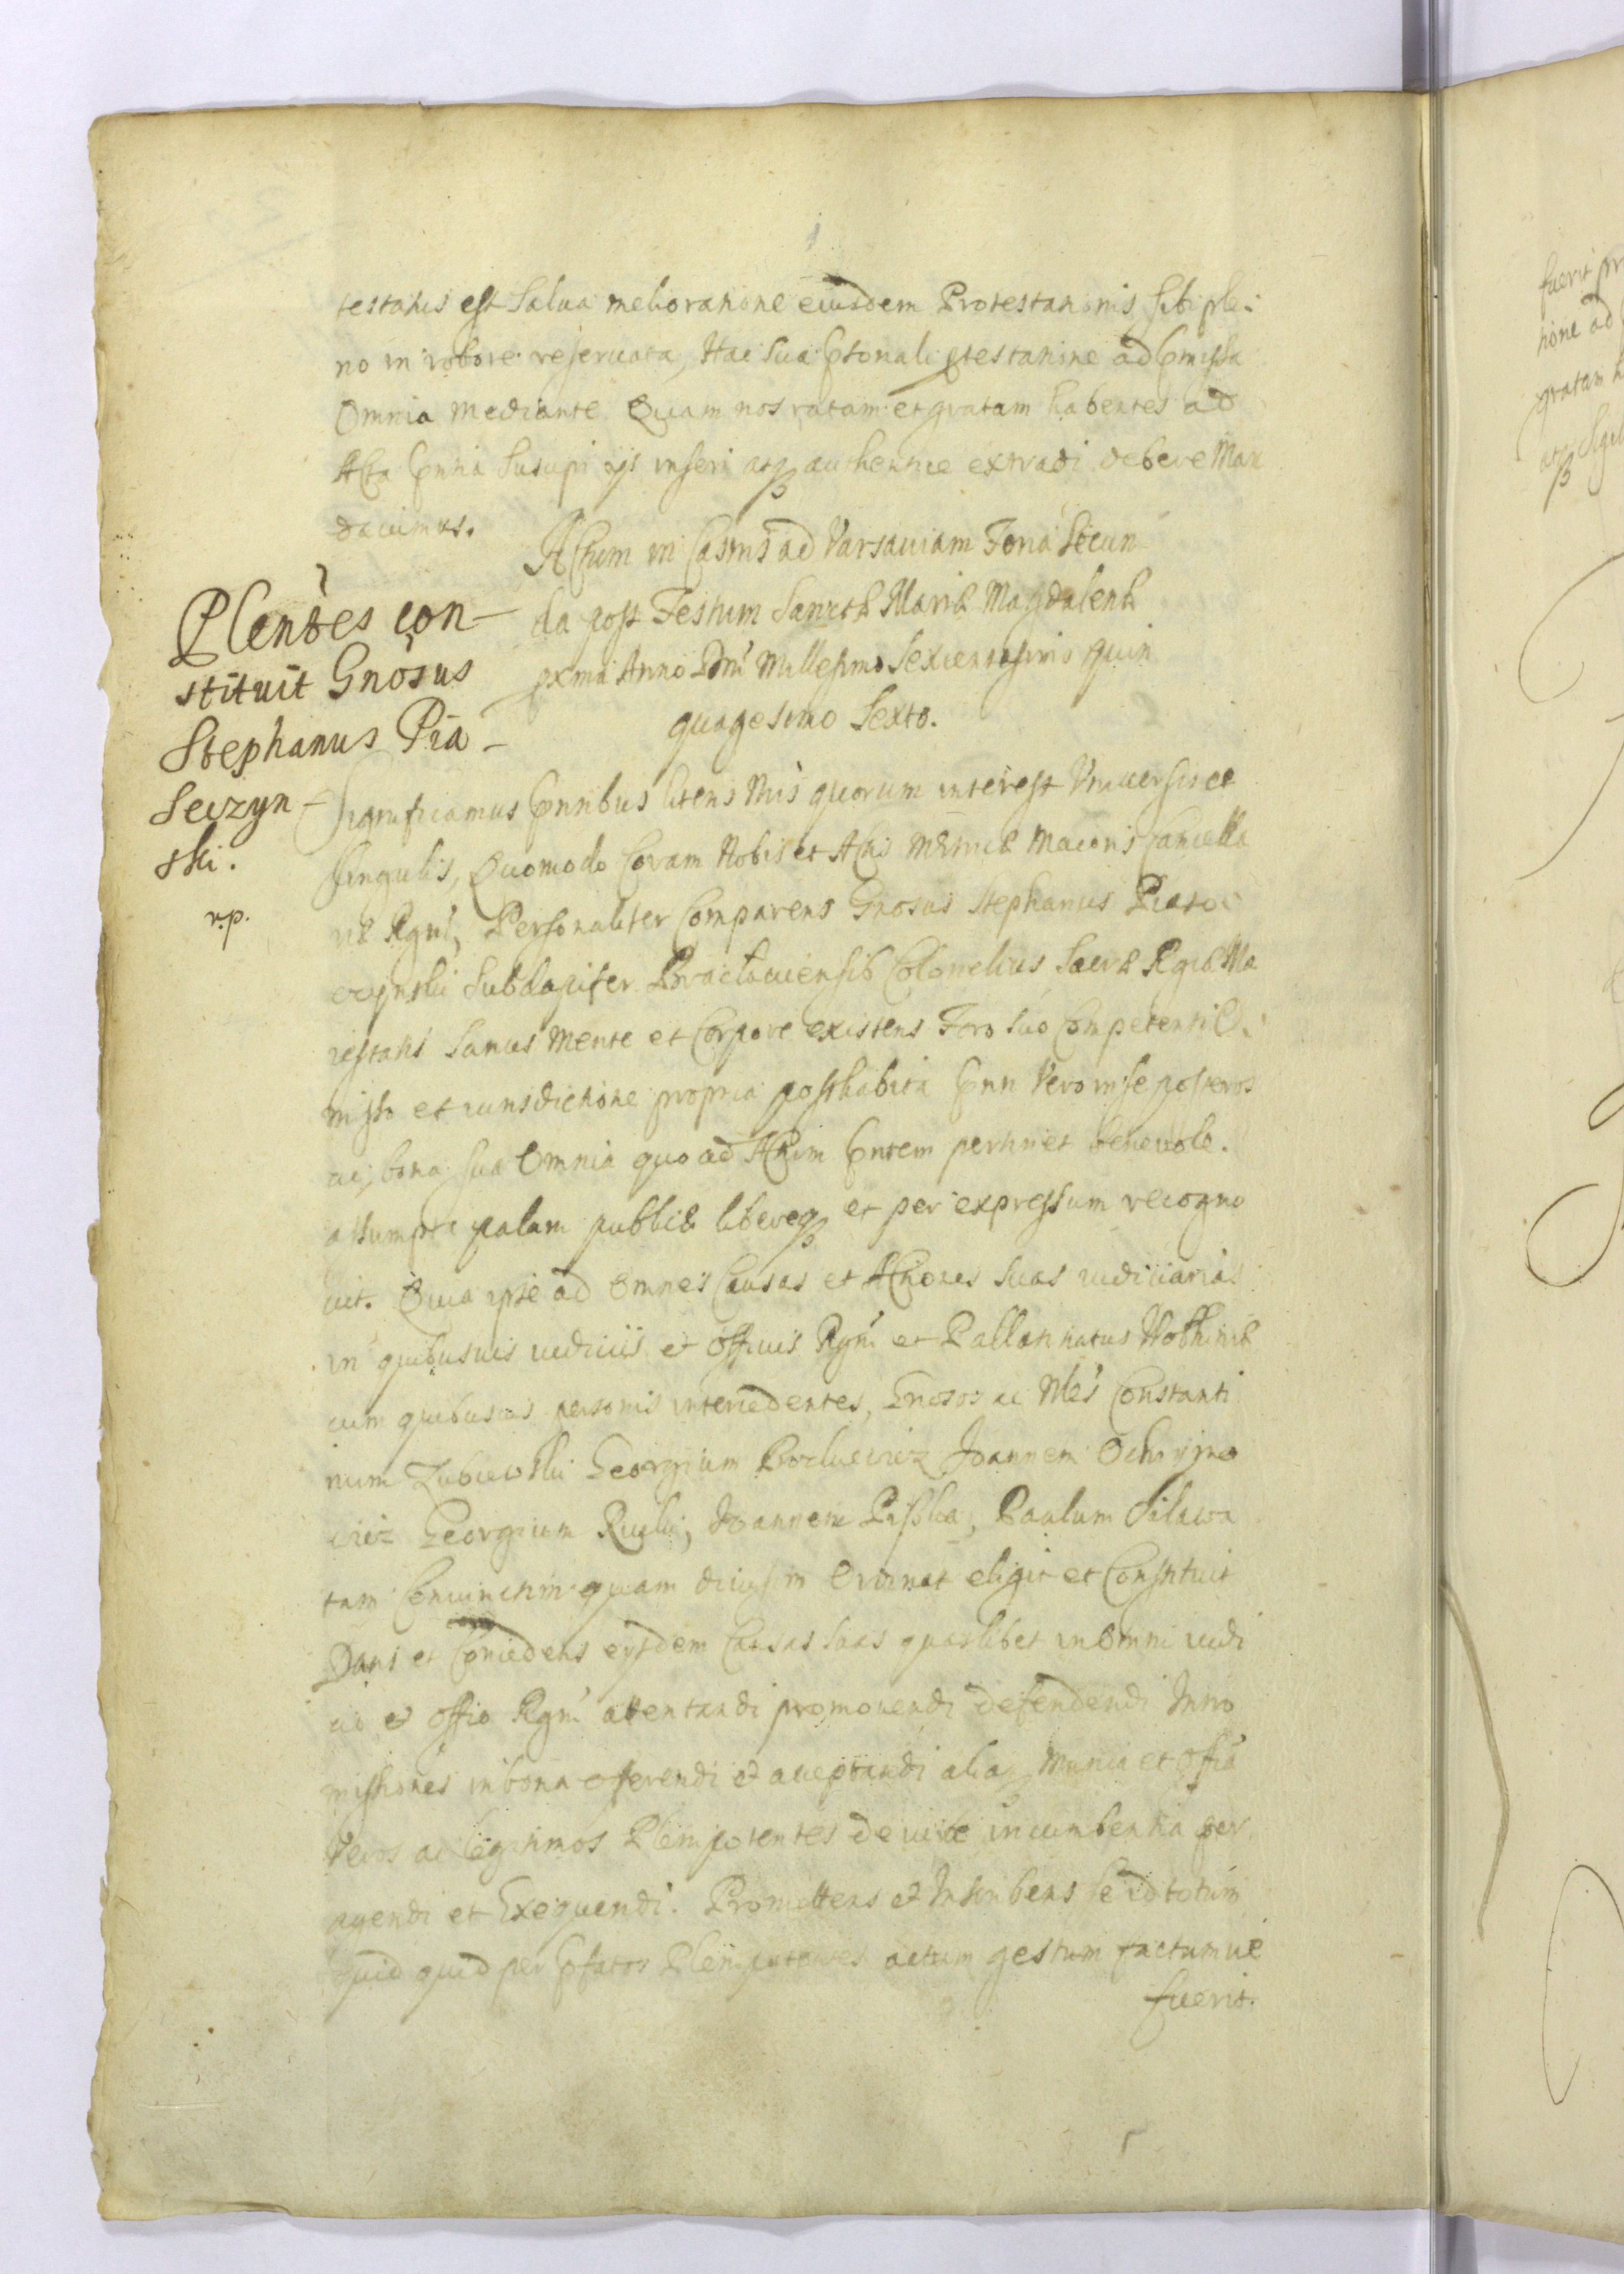 testatus est Salua melioratione eiusdem Protestationis sibi ple:
no in robore reseruata, Hac sua psonali ptestatine ad pmissa
Omnia mediante Quam nos ratam et gratam habentes ad
Acta pntia suscipi ijs inseri atq; authentice extradi debere Man
dauimus.
Actum in Castris ad Varsauiam Feria Secun
da post Festum Sanctæ Mariæ Magdalenæ
pxma Anno Dni Millesimo Sexcentesimo quin
quagesimo Sexto.
Plentes con-
stituit Gnosus
Stephanus Pia-
seczyn-
ski.
rp.
Significamus pntibus literis nris quorum interest Vniuersis et
singulis, Quomodo Coram Nobis et Actis Metricæ Maioris Cancella
riæ Rgni, Personaliter Comparens Gnosus Stephanus Piaso
czynski Subdapifer Braclauiensis Colonellus Sacræ Rgiæ Ma
iestatis Sanus mente et Corpore existens Foro suo Competenti O.
misso et iurisdictione propria posthabita pnti Vero in se posteros
ac bona sua Omnia quo ad Actum pntem pertinet beneuole.
assumpta palam publicæ libereq; et per expressum recogno
uit. Quia ipse ad Omnes Causas et Actiones suas iudiciarias
in quibusuis iudiciis et officiis Rgni et Pallatinatus Volhiniæ
cum quibusuis personis intercedentes, Gnosos ac Nles Constanti
num Zubcewski Georgium Joannem
wicz Georgium Joannem Paulum
tam Coniunctim quam diuisim Ordinat eligit et Constituit
Dans et Concedens eysdem Causas suas quaslibet in Omni iudi
cio et offio Rgni attentandi promouendi defendendi Intro
missiones in bona offerendi et acceptandi aliaq; munia et offia
Veros ac legitimos Plenipotentes de iure incumbentia per
agendi et Exequendi. Promittens et Inscribens se id totum
quid quid per pfatos Plenipotentes actum gestum factumue
fuerit.